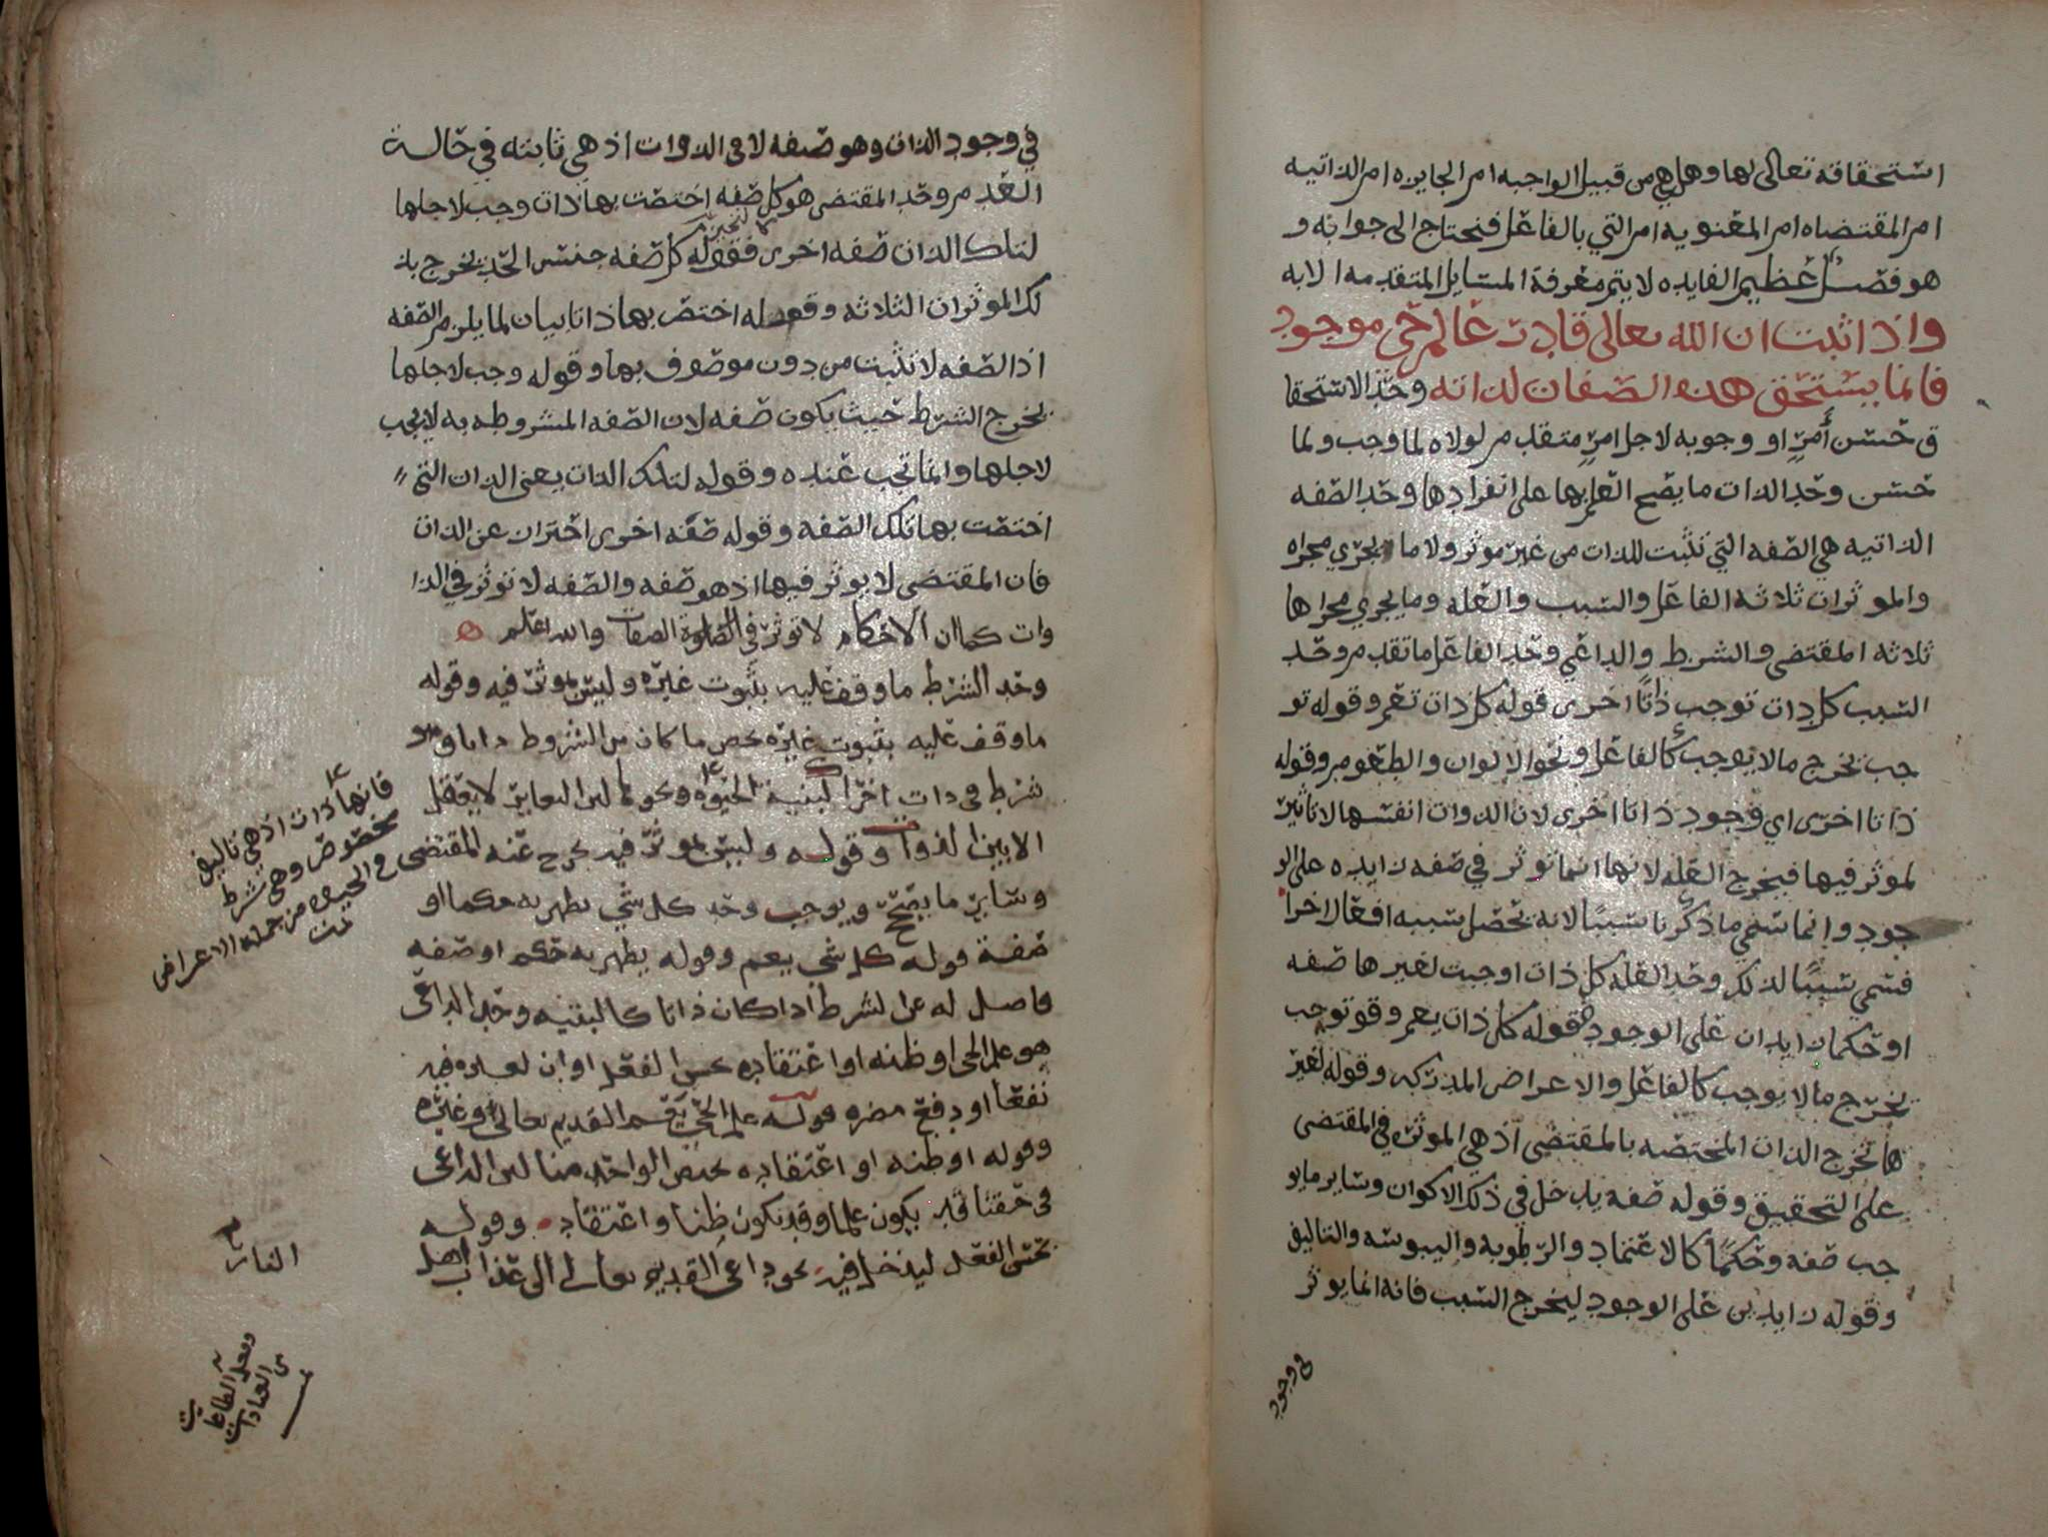 استحقاقه تعالى لها وهل هي من قبيل الواجبه ام الجايزه ام الذاتيه
ام المقتضاه ام المعنويه ام التي بالفاعل فنحتاج الى جوابه و
هو فصل عظيم الفايده لا يتم معرفة المسايل المتقدمه الا به
واذا ثبت ان الله تعالى قادر عالم حي موجود
فانما يستحق هذه الصفات لذاته وحد الاستحقا
ق حسن أمرٍ او وجوبه لاجل امرٍ متقدم لولاه لما وجب ولما
حسن وحد الذات ما يصح العلم بها على انفرادها وحد الصفه
الذاتيه هي الصفه التي تثبت للذات من غير موثر ولا ما يجري مجراه
والموثرات ثلاثه الفاعل والسبب والعله وما يجري مجراها
ثلاثه المقتضي والشرط والداعي وحد الفاعل ما تقدم وحد
السبب كل ذات توجب ذاتًا اخرى قوله كل ذات تعم وقوله تو
جب يخرج مالا يوجب كالفاعل ونحو الالوان والطعوم وقوله
ذاتا اخرى اي وجود ذاتا اخرى لان الذوات انفسها لا تاثير
لموثر فيها فيخرج العله لانها انما توثر في صفه زايده على الو
جود وانما سمي ما ذكرنا سببًا لانه تحصل بسببه افعال اخرا
فسمي سببًا لذلك وحد العله كل ذات اوجبت لغيرها صفه
او حكما زايدان على الوجود فقوله كل ذات يعم وقو توجب
تخرج مالا يوجب كالفاعل والاعراض المدركه وقوله لغير
ها تخرج الذات المختصه بالمقتضي اذ هي الموثره في المقتضى
على التحقيق وقوله صفه يدخل في ذلك الاكوان وساير ما يو
جب صفه وحكمًا كالاعتماد والرطوبه واليبوسه والتاليف
وقوله زايدين على الوجود ليخرج السبب فانه انما يوثر
في وجود
في وجود الذات وهو صفه لا في الذوات اذ هي ثابته في حالة
العدم وحد المقتضي هو كل صفه اختصت بها ذات وجب لاجلها
لتلك الذات صفه اخرى فقوله كل صفه جنس الحد يخرج بذ
لك الموثرات الثلاثه وقوله اختص بها ذاتا بيان لما يلزم الصفه
اذ الصفه لا تثبت من دون موصوف بها وقوله وجب لاجلها
يخرج الشرط حيث يكون صفه لان الصفه المشروطه به لا يجب
لاجلها وانما تجب عنده وقوله لتلك الذات يعني الذات التي
اختصت بها تلك الصفه وقوله صفه اخرى احتراز عن الذات
فان المقتضي لا يوثر فيها اذ هو صفه والصفه لا توثر في الذا
وات كما ان الاحكام لا توثر في الصفات والله اعلم
وحد الشرط ما وقف عليه بثبوت غيره وليس بموثر فيه وقوله
ما وقف عليه بثبوت غيره يخص ما كان من الشروط ذاتا وهو
شرط في ذات اخرا كبنية الحيوه ونحوها لان التغاير لا يعقل
الا بين الذوات وقوله وليس بموثر فيه يخرج عنه المقتضي
وساير ما يصحح ويوجب وحد كل شي يظهر به حكما او
صفة قوله كل شي يعم وقوله يظهر به حكم او صفه
فاصل له عن الشرط اذا كان ذاتا كالبنيه وحد الداعي
هو علم الحي او ظنه او اعتقاده بحسن الفعل او ان له فيه
نفعا او دفع مضره قوله علم الحي يقسم القديم تعالى وغيره
وقوله او ظنه او اعتقاده يختص الواحد منا لان الداعي
في حقنا قد يكون علما وقد يكون ظنا واعتقاد وقوله
بحسن الفعل ليدخل فيه نحو داعي القديم تعالى الى عذاب اهل
النار
فانها ذات اذ هي تاليف
مخصوص وهي شرط
في الحيوه من جملة الاعراض
تمت